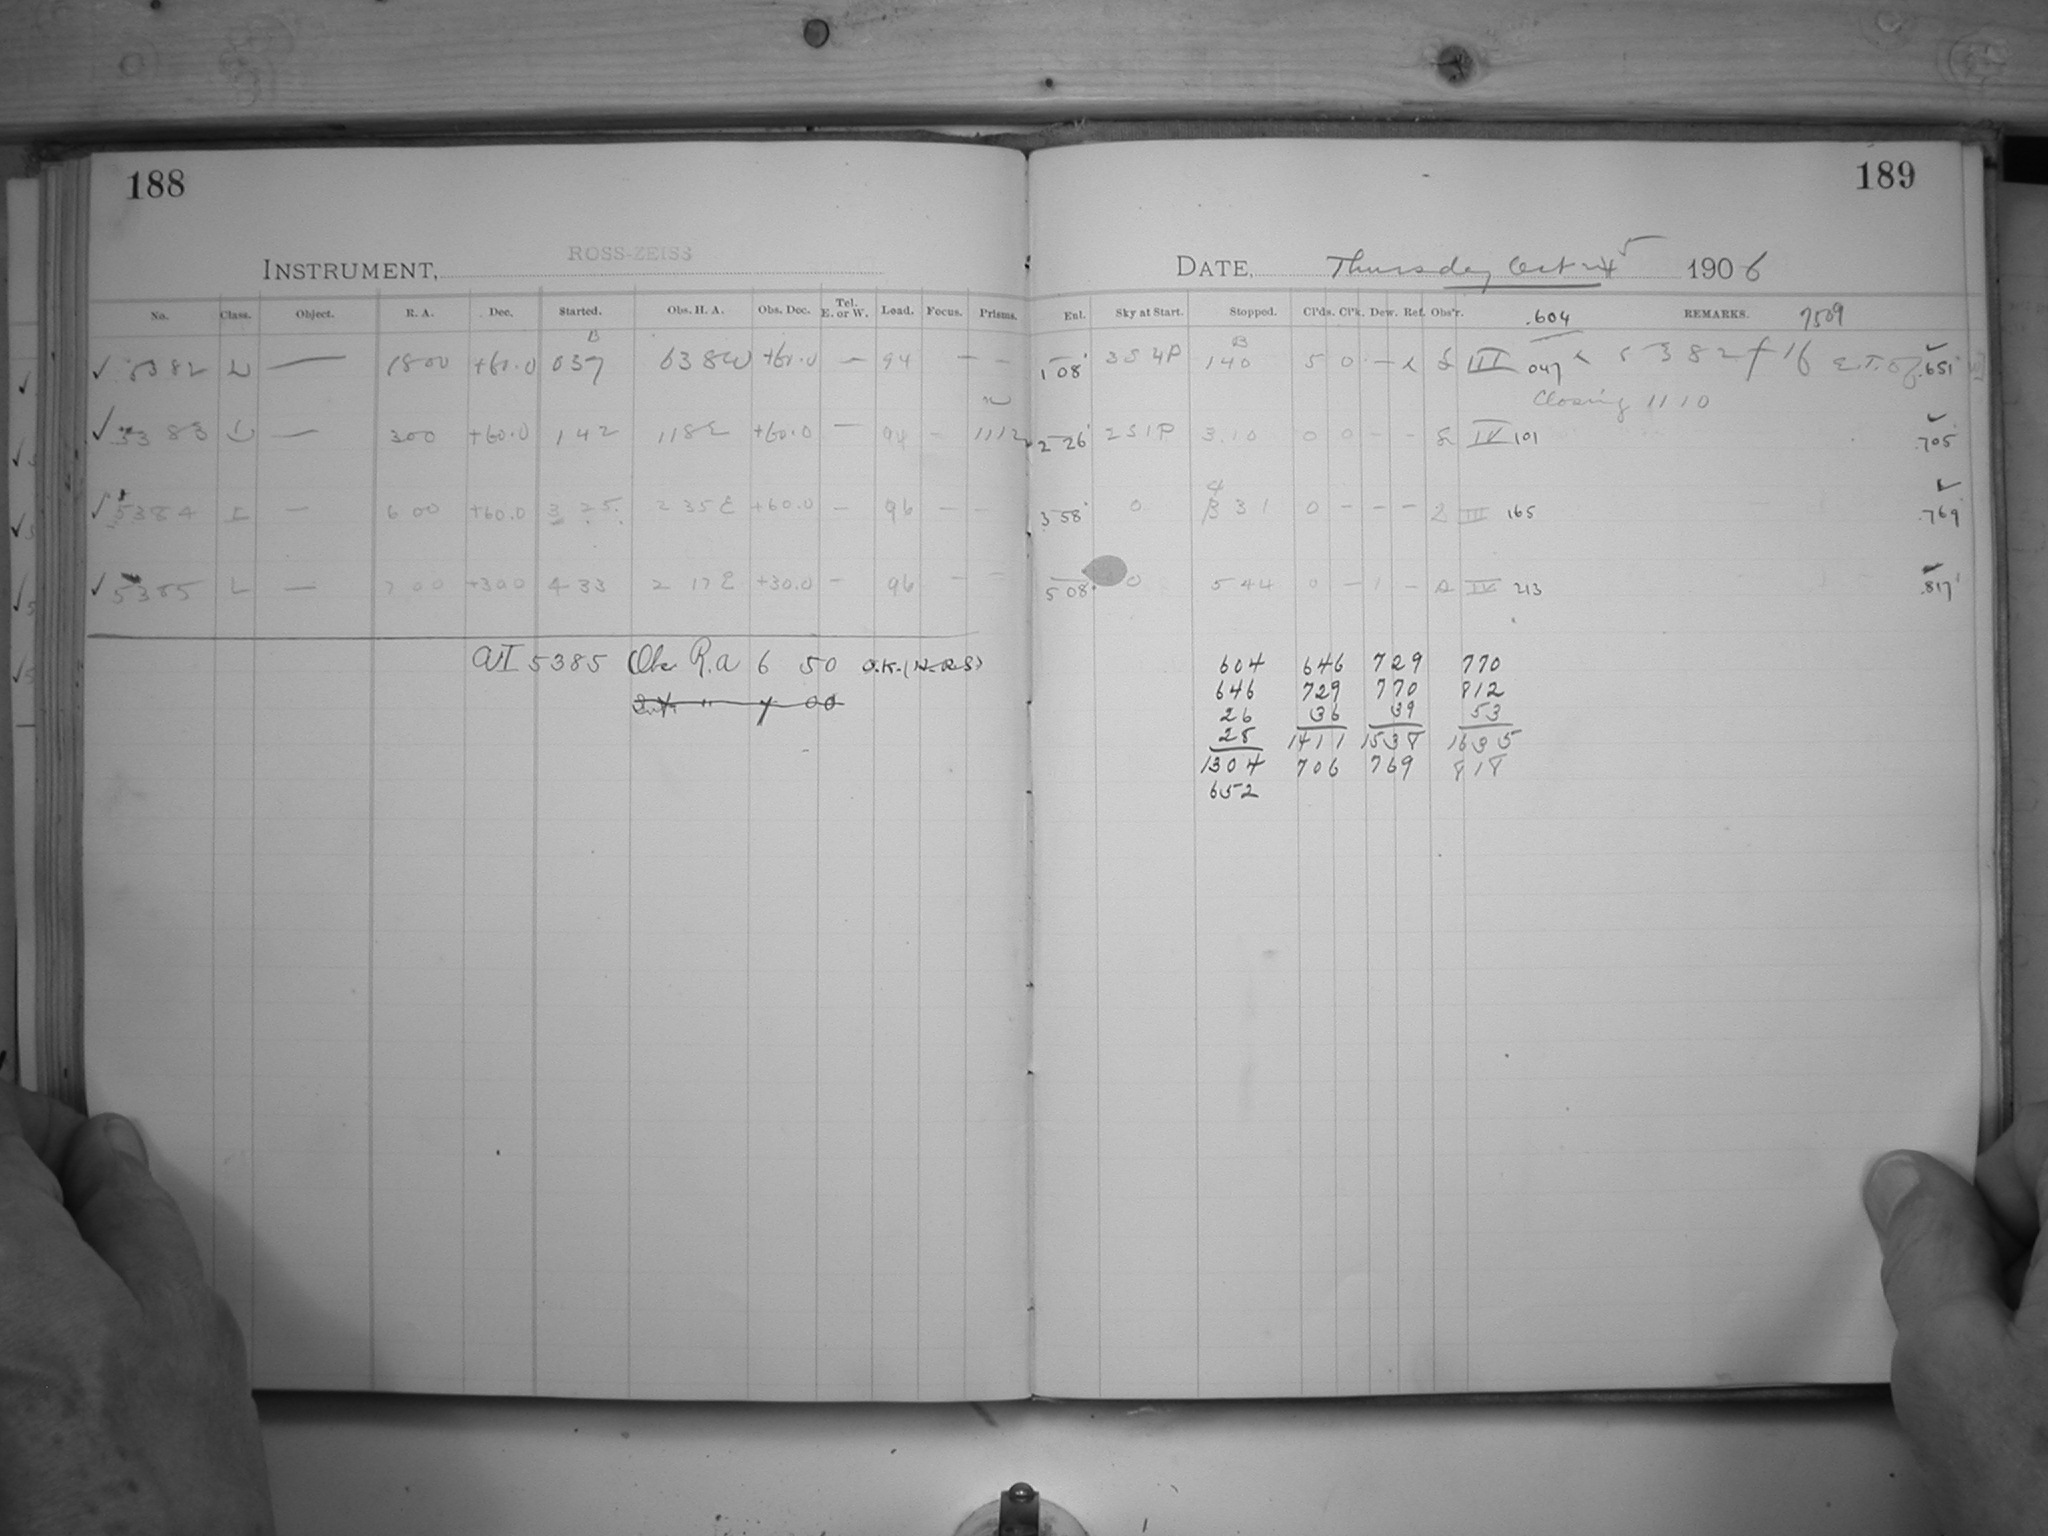 188
189
INSTRUMENT, ROSS-ZEISS
DATE, Thursday Oct 5 1906
No. Class. Object. R. A. Dec. Started. Obs. H. A. Obs. Dec. Tel. E. or W. Load. Focus. Prisms. Ent. Sky at Start. Stopped. Cl'ds. Cl'k. Dew. Ref. Obs'r. .604 REMARKS. 7509
B B
✓ 5382 L — 1800 +60.0 037 038W +60.0 — 94 — — 1 08 3S 4P 140 5 0 — III 047 5382 f 16 E.T. of .651
Closing 11 10
✓ 5383 L — 300 +60.0 142 118E +60.0 — 94 - 1112 2 26 2S1P 3.10 0 0 - - IV 101 .705
4
✓ 5384 L — 600 +60.0 3 25 2 35E +60.0 — 96 - - 3 58 0 3 31 0 - - - III 165 .769
✓ 5385 L — 700 +30.0 4 33 2 17E +30.0 - 96 - - 5 08 0 5 44 0 - 1 - IV 213 .817
AI 5385 Obs R.a 6 50 O.K. (H.R.S)
" 7 00
604 646 729 770
646 729 770 812
26 36 39 53
25 1411 1538 1635
1304 706 769 818
652